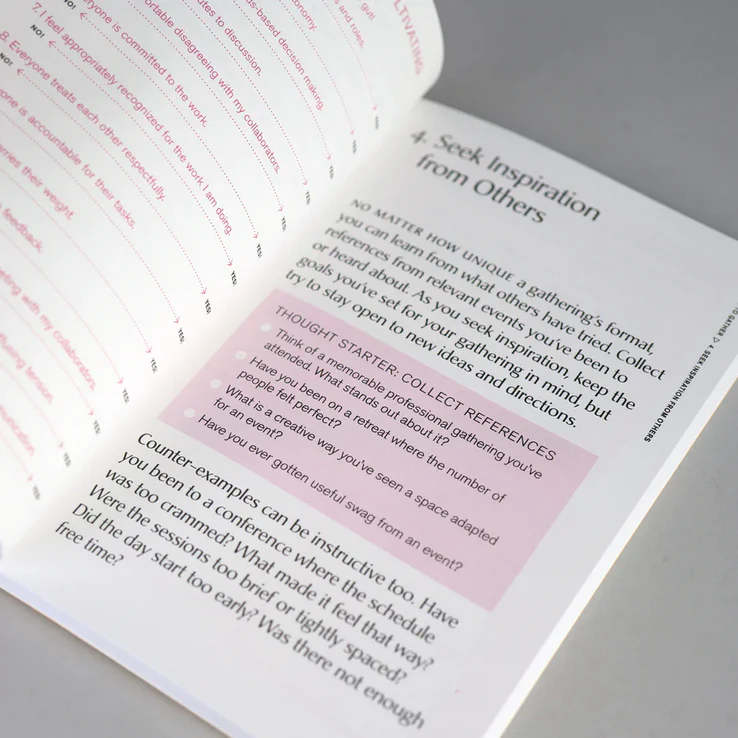 LTIVATING
gut!
s and roles.
onomy.
us-based decision making.
utes to discussion.
ortable disagreeing with my collaborators.
NO!
eryone is committed to the work.
7. I feel appropriately recognized for the work I am doing.
NO!
8. Everyone treats each other respectfully.
NO!
one is accountable for their tasks.
rries their weight.
feedback.
eting with my collaborators.
fusing tension.
YES!
YES!
YES!
YES!
YES!
YES!
YES!
YES!
YES!
YES!
YES!
YES!
YES!
4. Seek Inspiration
from Others
NO MATTER HOW UNIQUE a gathering's format,
you can learn from what others have tried. Collect
references from relevant events you've been to
or heard about. As you seek inspiration, keep the
goals you've set for your gathering in mind, but
try to stay open to new ideas and directions.
THOUGHT STARTER: COLLECT REFERENCES
Think of a memorable professional gathering you've
attended. What stands out about it?
Have you been on a retreat where the number of
people felt perfect?
What is a creative way you've seen a space adapted
for an event?
Have you ever gotten useful swag from an event?
Counter-examples can be instructive too. Have
you been to a conference where the schedule
was too crammed? What made it feel that way?
Were the sessions too brief or tightly spaced?
Did the day start too early? Was there not enough
free time?
TO GATHER ▷ 4. SEEK INSPIRATION FROM OTHERS